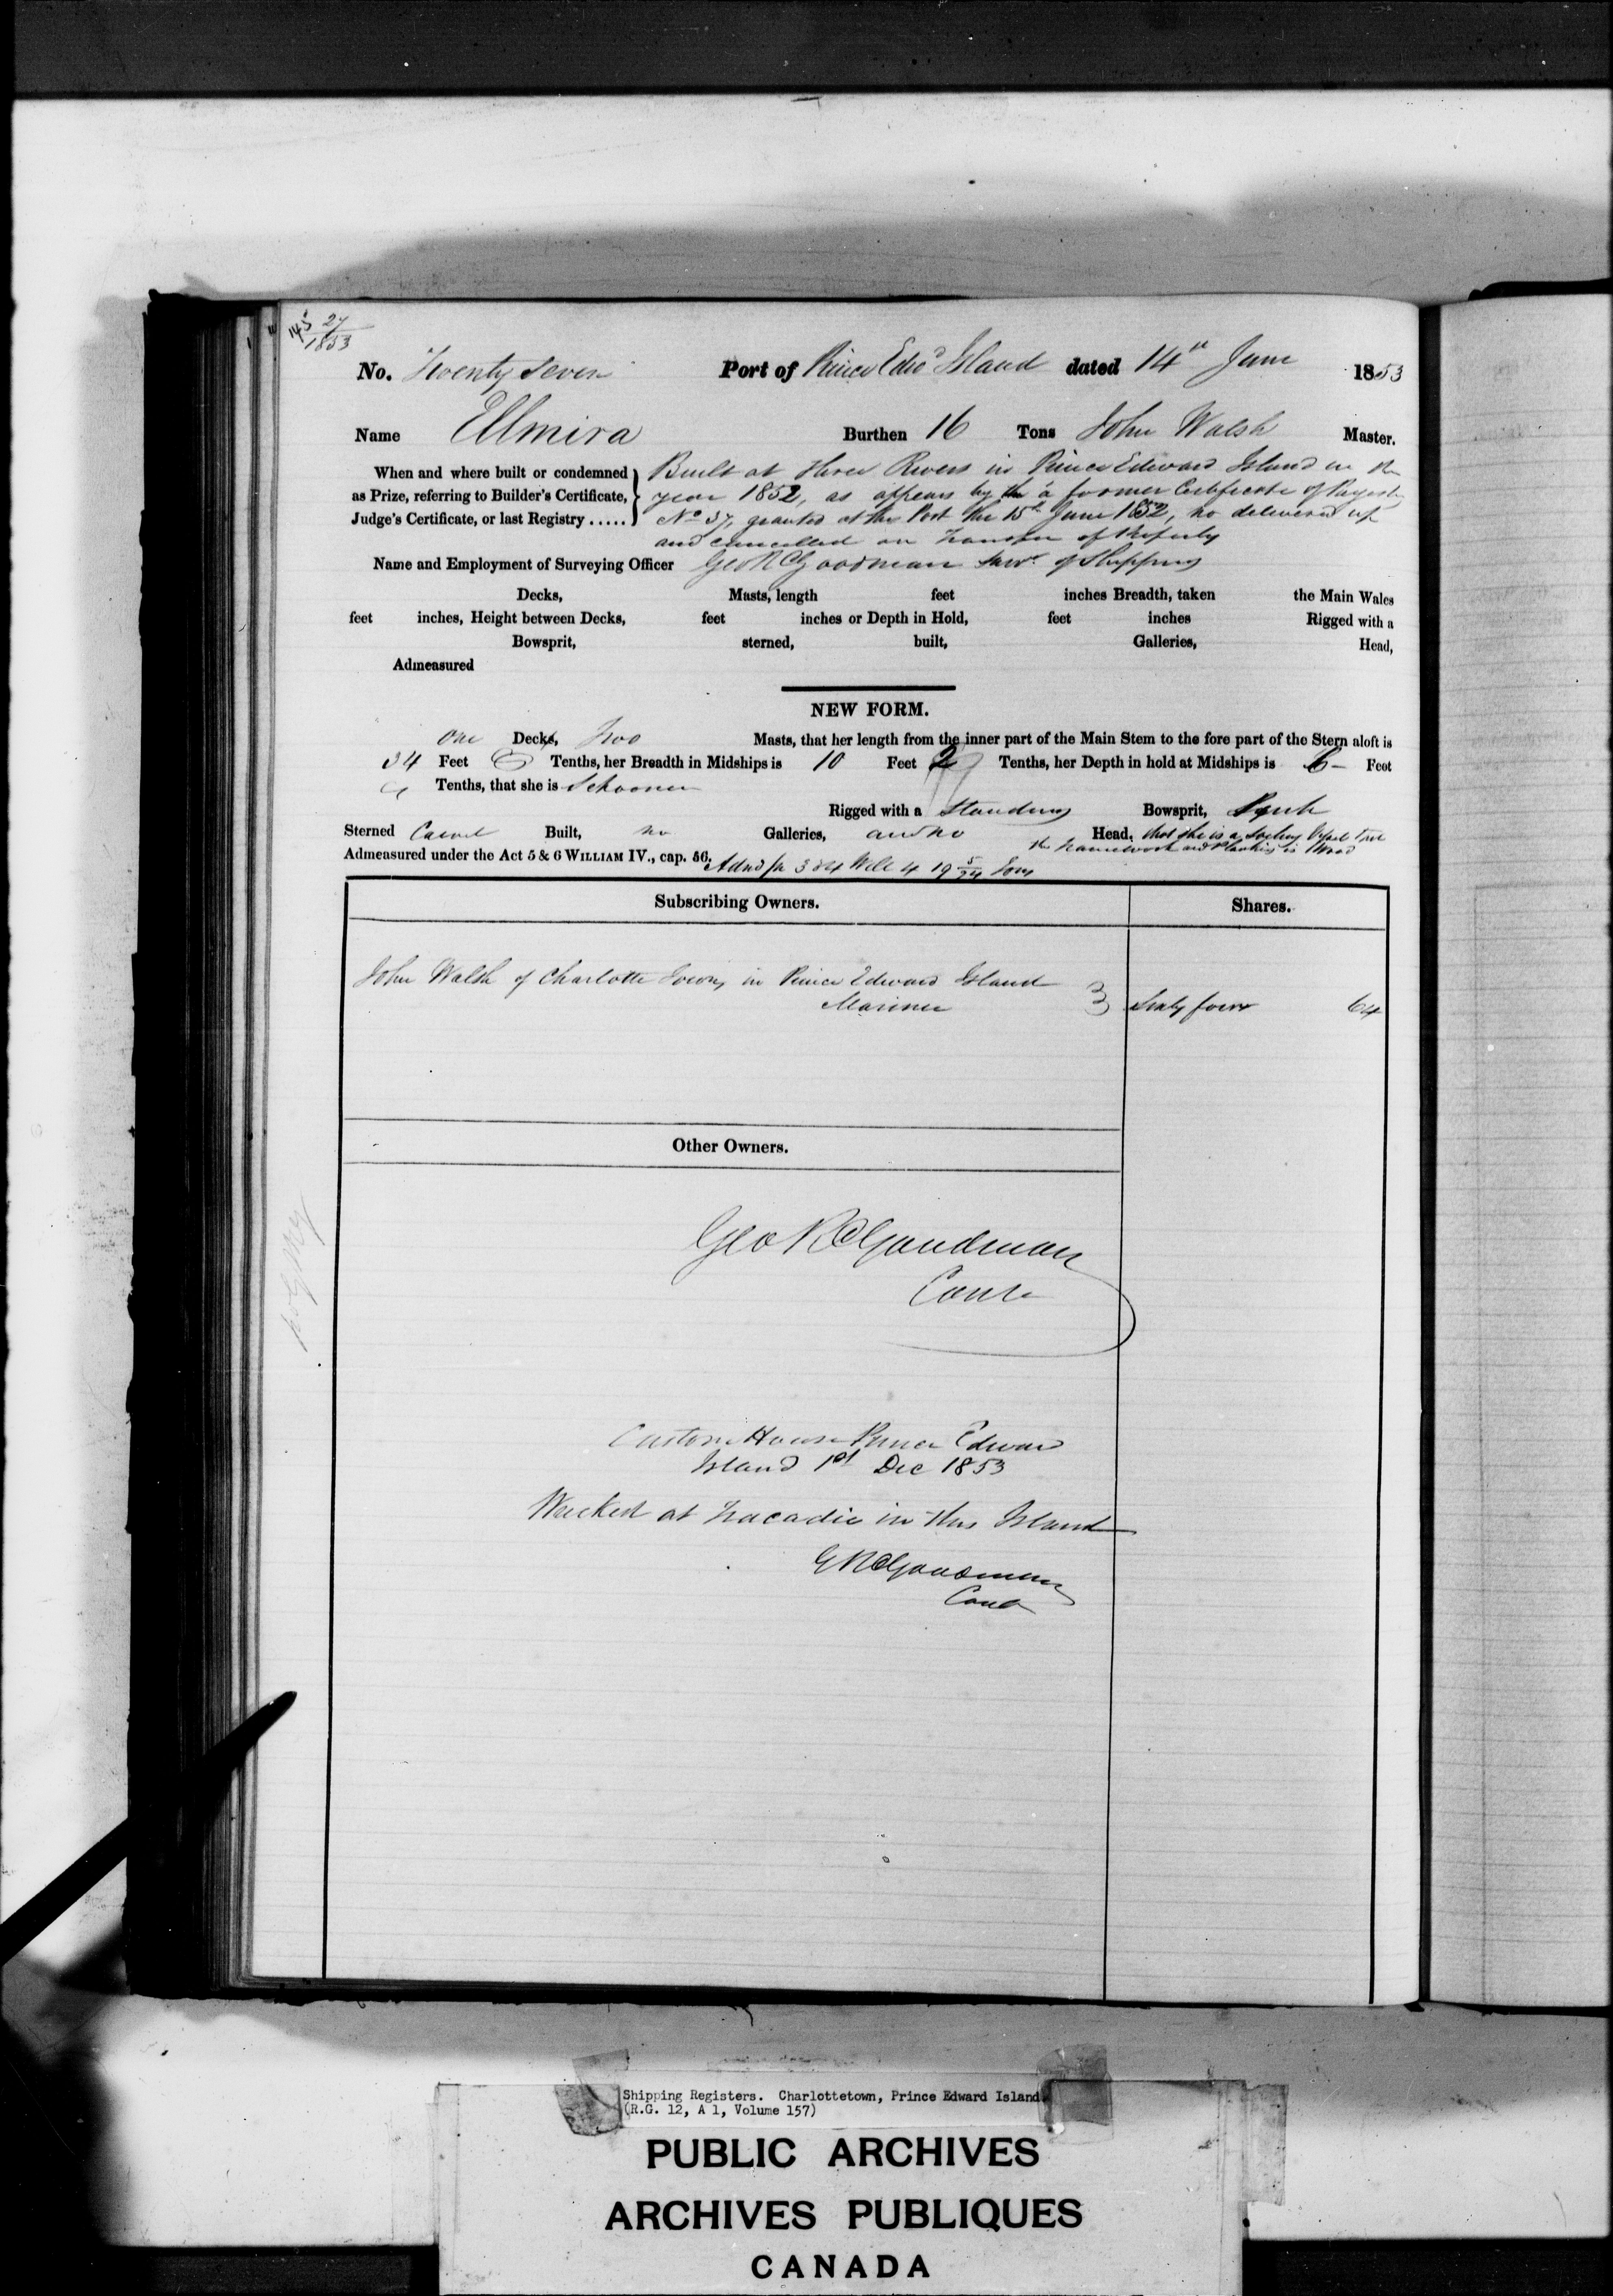 27
1853
No. Twenty Seven Port of Prince Edwd Island dated 14th June 1853
Name Ellmira Burthen 16 Tons John Walsh Master.
When and where built or condemned as Prize, referring to Builder's Certificate, Judge's Certificate, or last Registry .....
Built at Three Rivers in Prince Edward Island in the
year 1852, as appears by the a former Certificate of Registry
No 37, granted at this Port the 15th June 1852, no delivered up
and cancelled on Transfer of Property
Name and Employment of Surveying Officer Geo R Goodman Survr of Shipping
Decks, Masts, length feet inches Breadth, taken the Main Wales
feet inches, Height between Decks, feet inches or Depth in Hold, feet inches Rigged with a
Bowsprit, sterned, built, Galleries, Head,
Admeasured
NEW FORM.
One Decks, Two Masts, that her length from the inner part of the Main Stem to the fore part of the Stern aloft is
34 Feet Tenths, her Breadth in Midships is 10 Feet 2 Tenths, her Depth in hold at Midships is 6 Feet
Tenths, that she is Schooner
Rigged with a Standing Bowsprit, Square
Sterned Carvel Built, no Galleries, and no Head, that she is a Sailing Vessel that
the framework and Planking is Wood
Admeasured under the Act 5 & 6 WILLIAM IV., cap. 56.
Subscribing Owners. Shares.
John Walsh of Charlotte Town, in Prince Edward Island
Mariner Sixty four 64
Other Owners.
Geo R Goodman
Contr
Custom House Prince Edward
Island 1st Dec 1853
Wrecked at Tracadie in this Island
G R Goodman
Contr
Shipping Registers. Charlottetown, Prince Edward Island
(R.G. 12, A 1, Volume 157)
PUBLIC ARCHIVES
ARCHIVES PUBLIQUES
CANADA